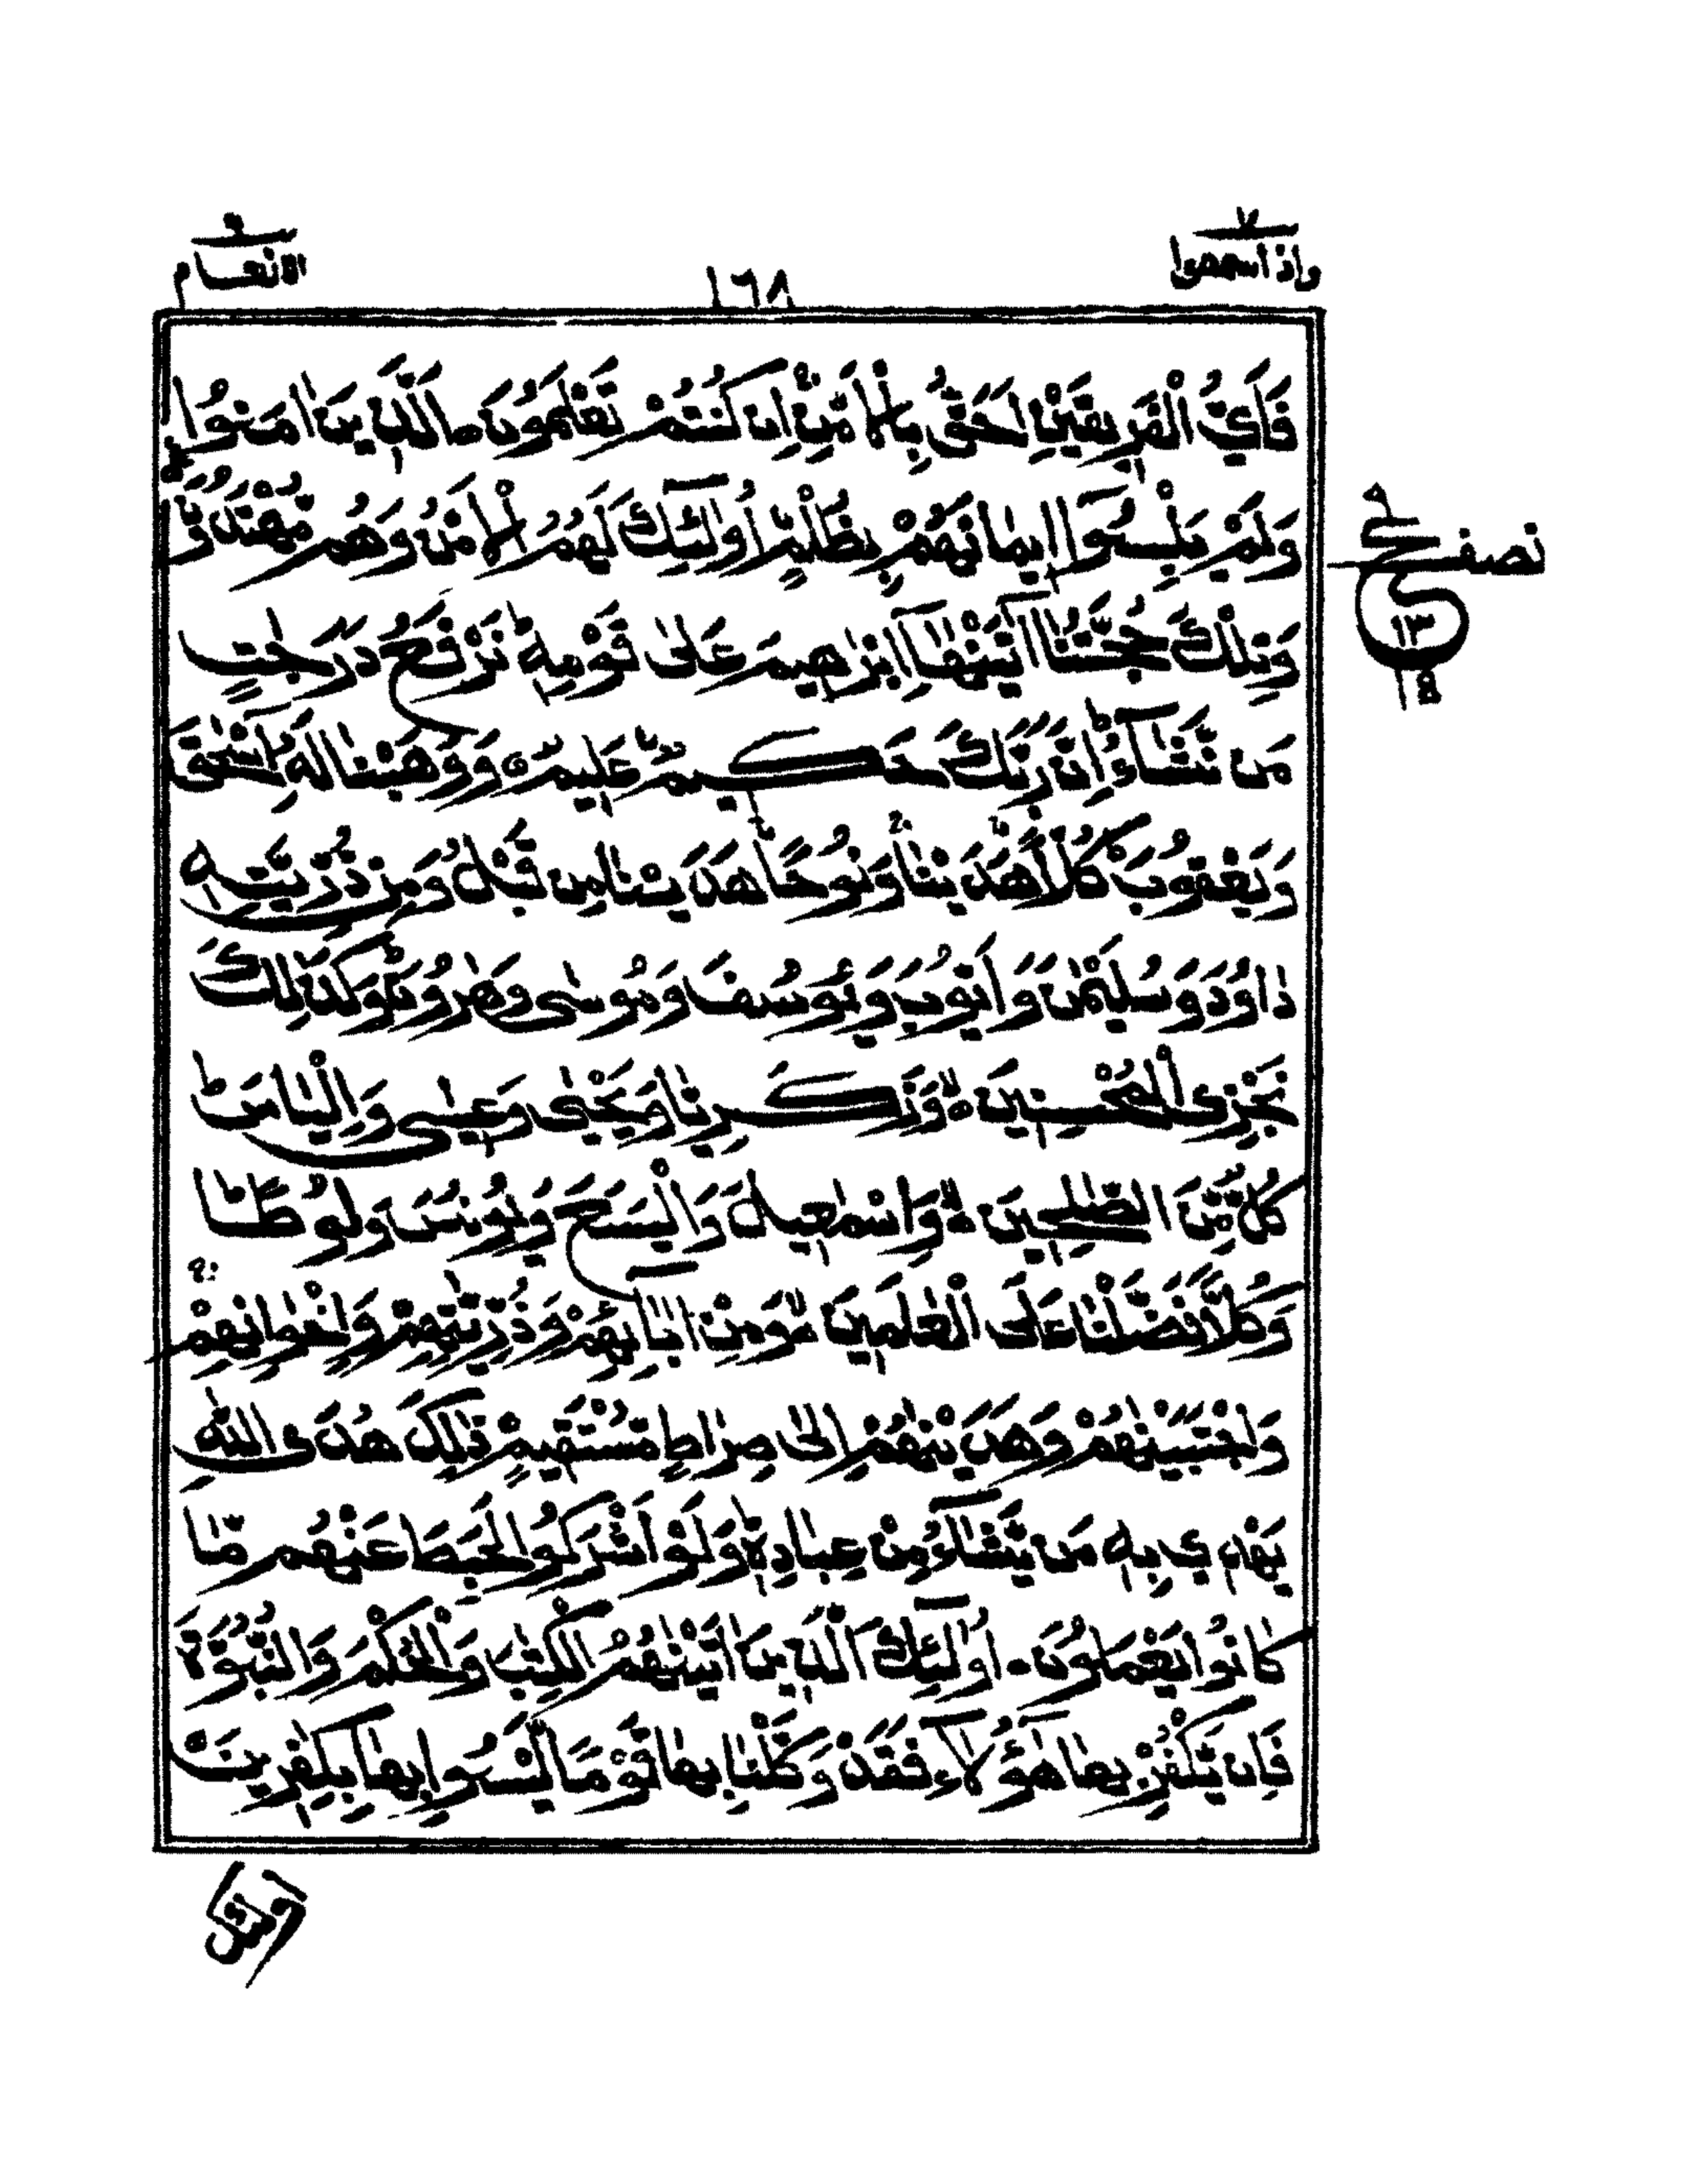 واذا سمعوا ٧
١٦٨
الانعام ٦
فَاَيُّ الْفَرِيْقَيْنِ اَحَقُّ بِالْاَمْنِ اِنْ كُنْتُمْ تَعْلَمُوْنَ اَلَّذِيْنَ اٰمَنُوْا
وَلَمْ يَلْبِسُوْٓا اِيْمَانَهُمْ بِظُلْمٍ اُولٰٓئِكَ لَهُمُ الْاَمْنُ وَهُمْ مُّهْتَدُوْنَ
نصف
ع
١٣
١٥
وَتِلْكَ حُجَّتُنَآ اٰتَيْنٰهَآ اِبْرٰهِيْمَ عَلٰى قَوْمِهٖ نَرْفَعُ دَرَجٰتٍ
مَّنْ نَّشَآءُ اِنَّ رَبَّكَ حَكِيْمٌ عَلِيْمٌ وَوَهَبْنَا لَهٗٓ اِسْحٰقَ
وَيَعْقُوْبَ كُلًّا هَدَيْنَا وَنُوْحًا هَدَيْنَا مِنْ قَبْلُ وَمِنْ ذُرِّيَّتِهٖ
دَاوٗدَ وَسُلَيْمٰنَ وَاَيُّوْبَ وَيُوْسُفَ وَمُوْسٰى وَهٰرُوْنَ وَكَذٰلِكَ
نَجْزِى الْمُحْسِنِيْنَ وَزَكَرِيَّا وَيَحْيٰى وَعِيْسٰى وَاِلْيَاسَ
كُلٌّ مِّنَ الصّٰلِحِيْنَ وَاِسْمٰعِيْلَ وَالْيَسَعَ وَيُوْنُسَ وَلُوْطًا
وَكُلًّا فَضَّلْنَا عَلَى الْعٰلَمِيْنَ وَمِنْ اٰبَآئِهِمْ وَذُرِّيّٰتِهِمْ وَاِخْوَانِهِمْ
وَاجْتَبَيْنٰهُمْ وَهَدَيْنٰهُمْ اِلٰى صِرَاطٍ مُّسْتَقِيْمٍ ذٰلِكَ هُدَى اللّٰهِ
يَهْدِيْ بِهٖ مَنْ يَّشَآءُ مِنْ عِبَادِهٖ وَلَوْ اَشْرَكُوْا لَحَبِطَ عَنْهُمْ مَّا
كَانُوْا يَعْمَلُوْنَ اُولٰٓئِكَ الَّذِيْنَ اٰتَيْنٰهُمُ الْكِتٰبَ وَالْحُكْمَ وَالنُّبُوَّةَ
فَاِنْ يَّكْفُرْ بِهَا هٰٓؤُلَآءِ فَقَدْ وَكَّلْنَا بِهَا قَوْمًا لَّيْسُوْا بِهَا بِكٰفِرِيْنَ
اولئك